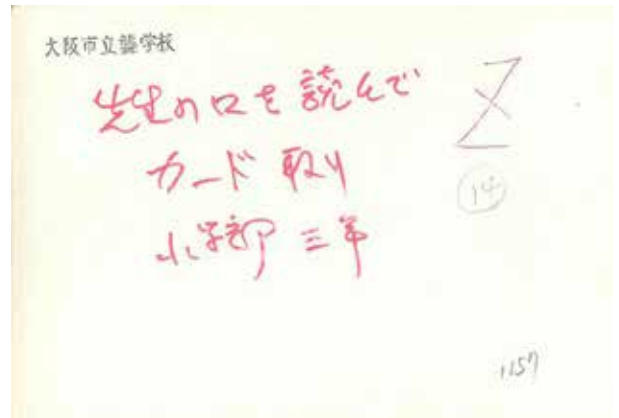 大阪市立聾学校
先生の口を読んで
カード取り
小学部 三年
Z
14
1157